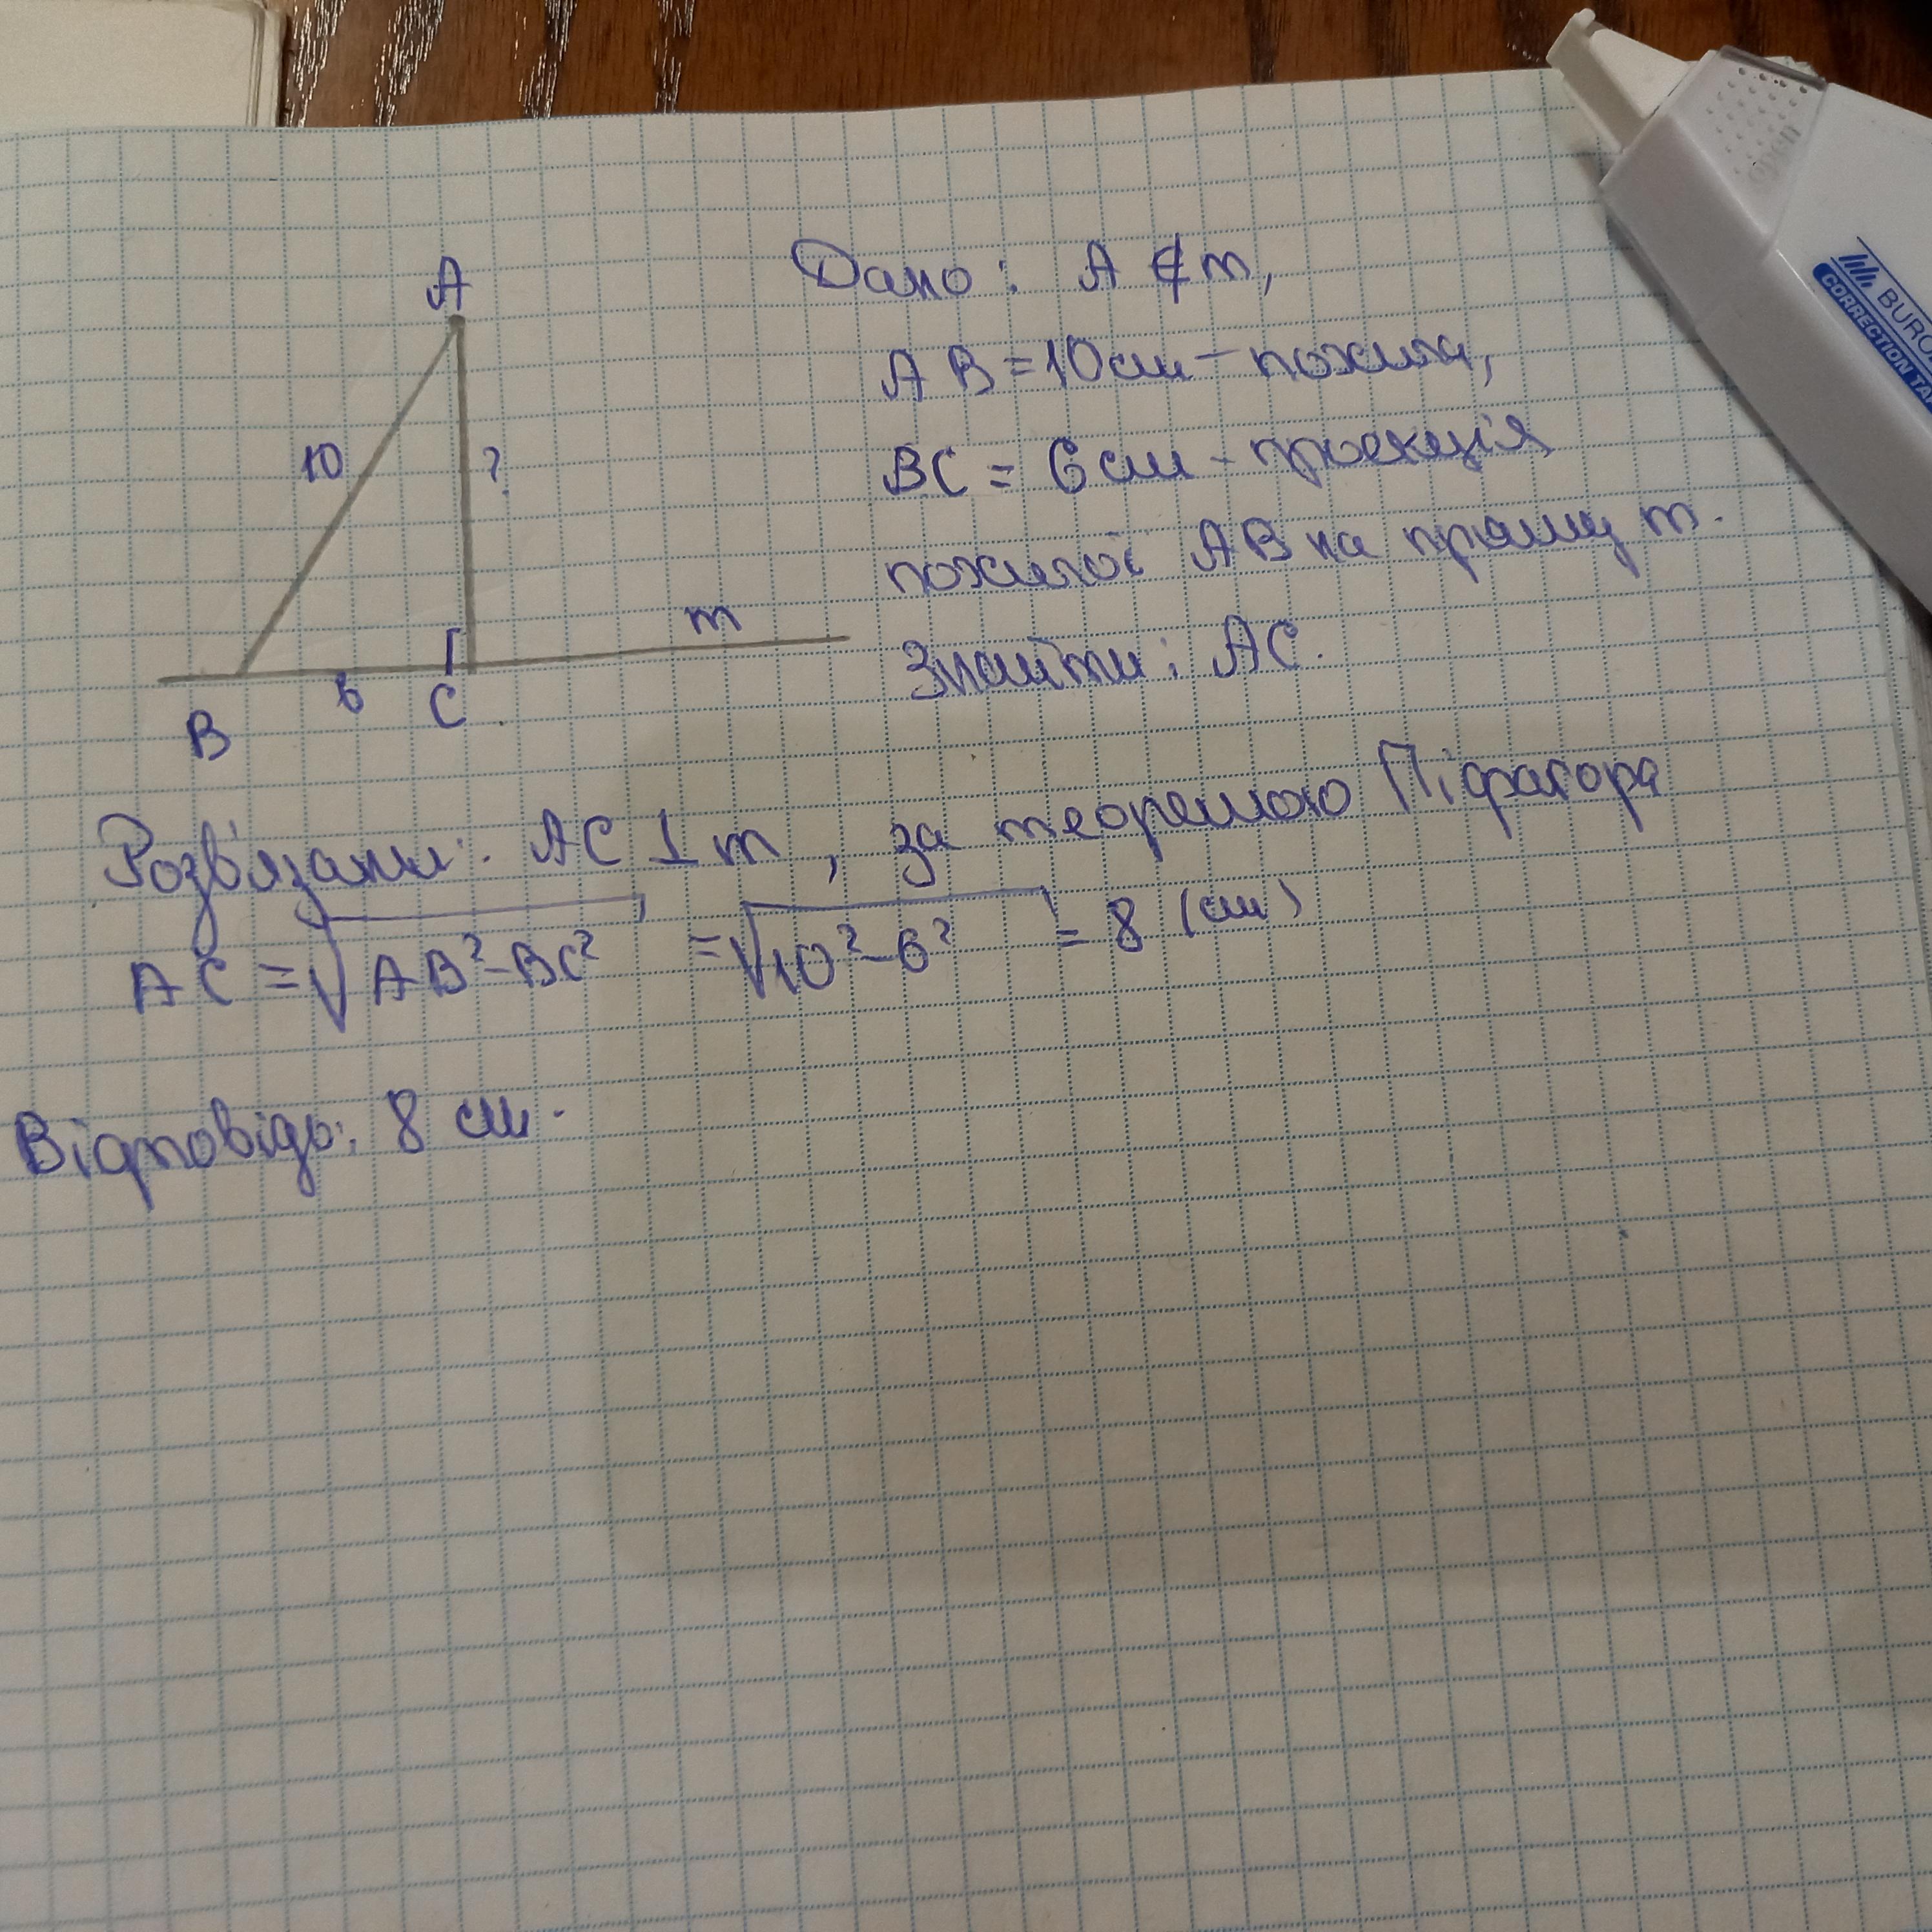 A
10
?
m
B
6
C
Дано: A ∉ m,
AB = 10 см - похила,
BC = 6 см - проекція
похилої AB на пряму m.
Знайти: AC.
Розв'язання: AC ⊥ m, за теоремою Піфагора
AC = √AB² - BC² = √10² - 6² = 8 (см)
Відповідь: 8 см.
BURO
CORRECTION TA